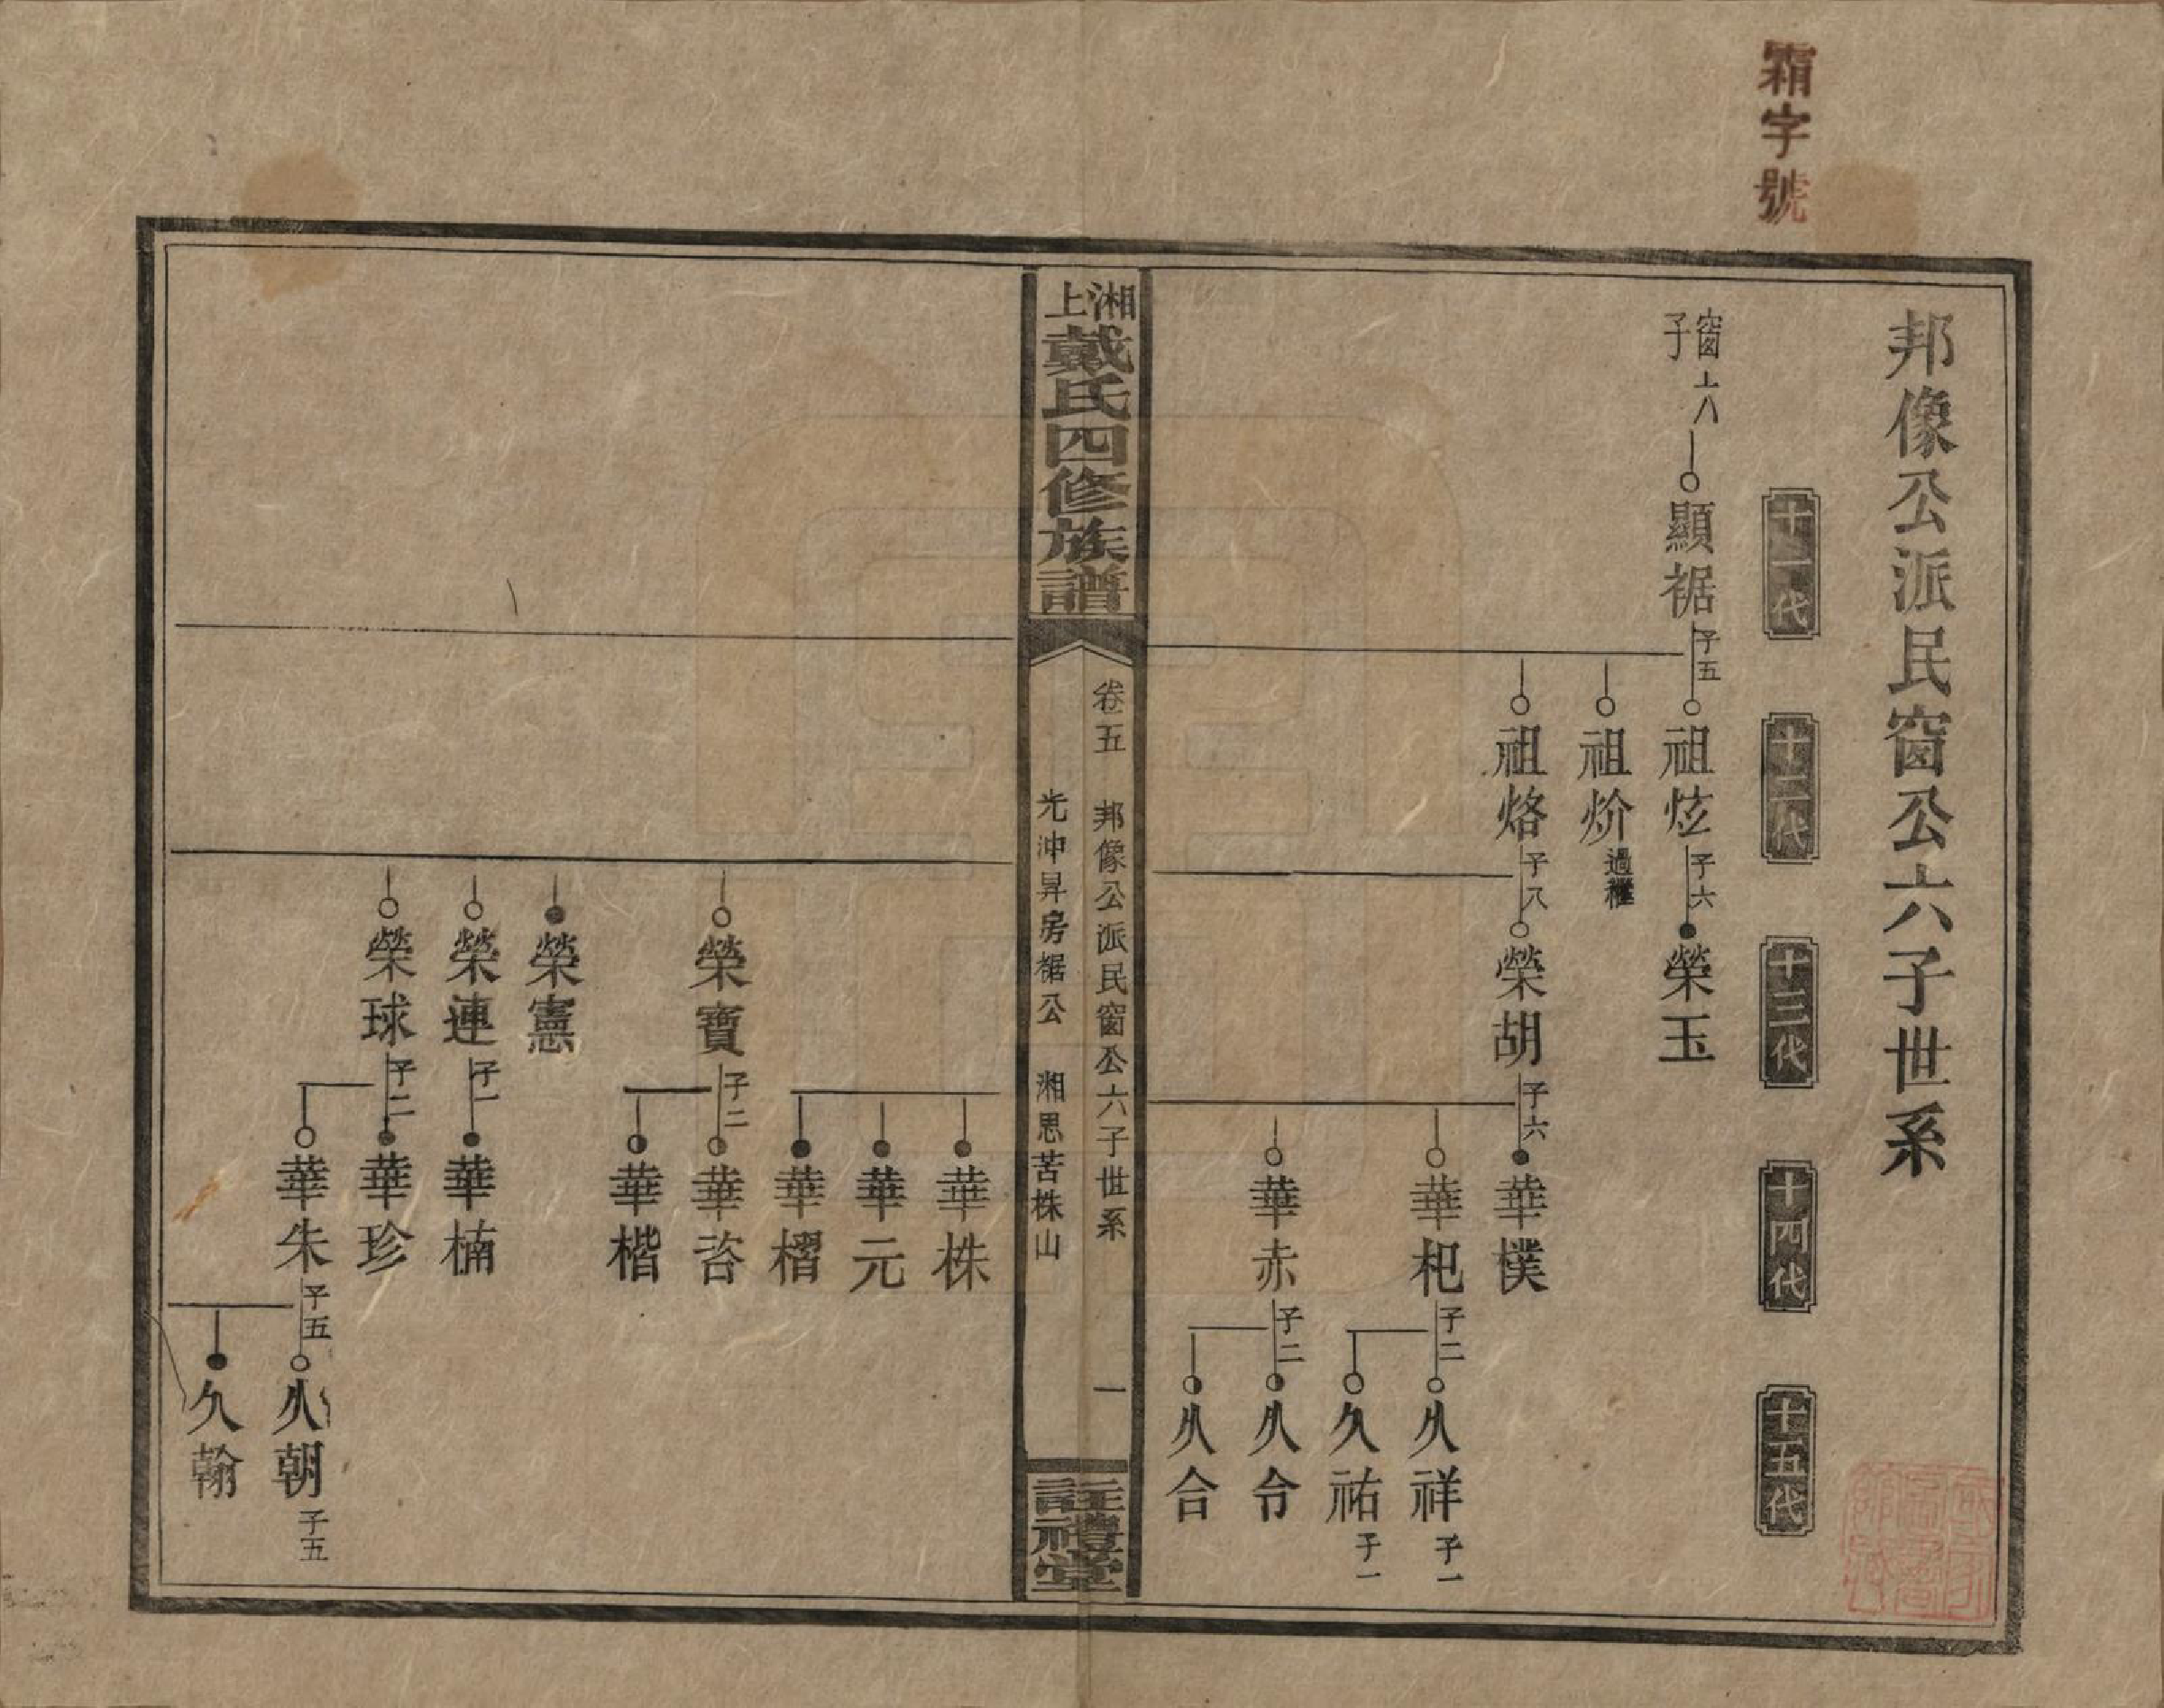 霜字號
邦像公派民窗公六子世系
十一代
十二代
十三代
十四代
十五代
窗
子
上
八
顯裾
子五
祖炫
子六
榮玉
祖炌
過繼
祖烙
子八
榮胡
子六
華樸
華杞
子二
久祥
子一
久祐
子一
華赤
子二
久令
久合
湘上戴氏四修族譜
卷五
邦像公派民窗公六子世系
一
光冲昇房裾公
湘思苦株山
註禮堂
華株
華元
華榴
榮寶
子二
華咨
華楷
榮憲
榮連
子一
華楠
榮球
子二
華珍
華朱
子五
久朝
子五
久翰